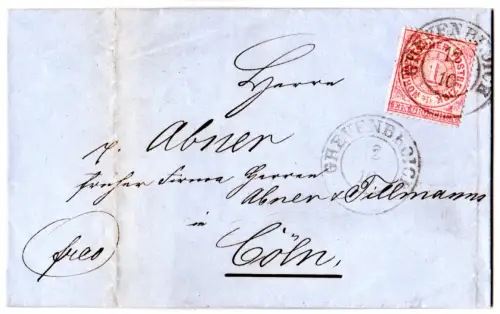 GREVENBROICH
Herrn
Abner
GREVENBROICH
früher Firma Herren
Abner & Tillmanns
in
Cöln,
frco